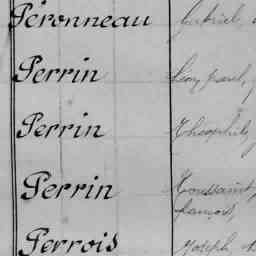 Péronneau Gabriel,
Perrin Léon Paul,
Perrin Théophile,
Perrin Toussaint,
François,
Perrois Joseph